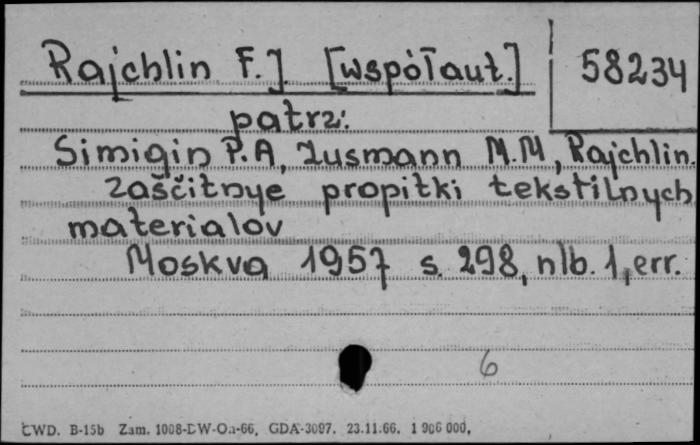 Rajchlin F.J. [współaut.]
58234
patrz:
Simigin P.A, Zusmann M.M, Rajchlin.
Zaščitnye propitki tekstilnych
materialov
Moskva 1957 s. 298, nlb. 1, err.
6
CWD. B-15b Zam. 1008-DW-Oa-66, GDA-3097. 23.11.66. 1 906 000,